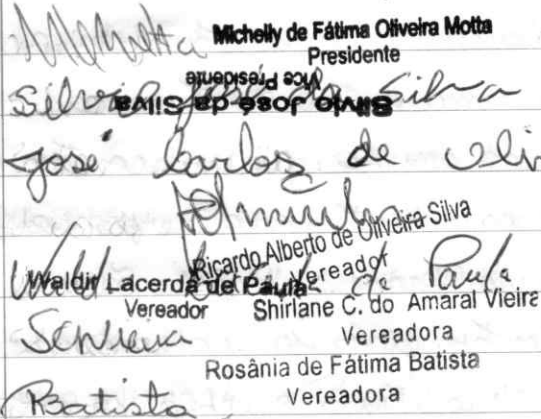 Michelly de Fátima Oliveira Motta
Presidente
Vice Presidente
Silvio José da Silva
Silvio José da Silva
José Carlos de Oliv
Ricardo Alberto de Oliveira Silva
Vereador
Waldir Lacerda de Paula
de Paula
Vereador
Shirlane C. do Amaral Vieira
Vereadora
Rosânia de Fátima Batista
Vereadora
Batista